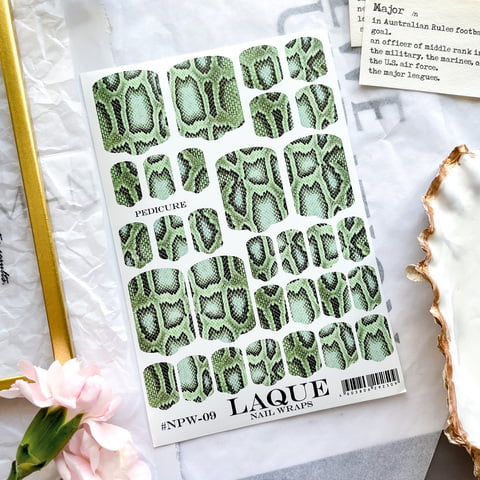 Major n
in Australian Rules footba
goal.
an officer of middle rank in
the military, the marines, o
the U.S. air force.
the major leagues.
PEDICURE
#NPW-09 LAQUE
NAIL WRAPS